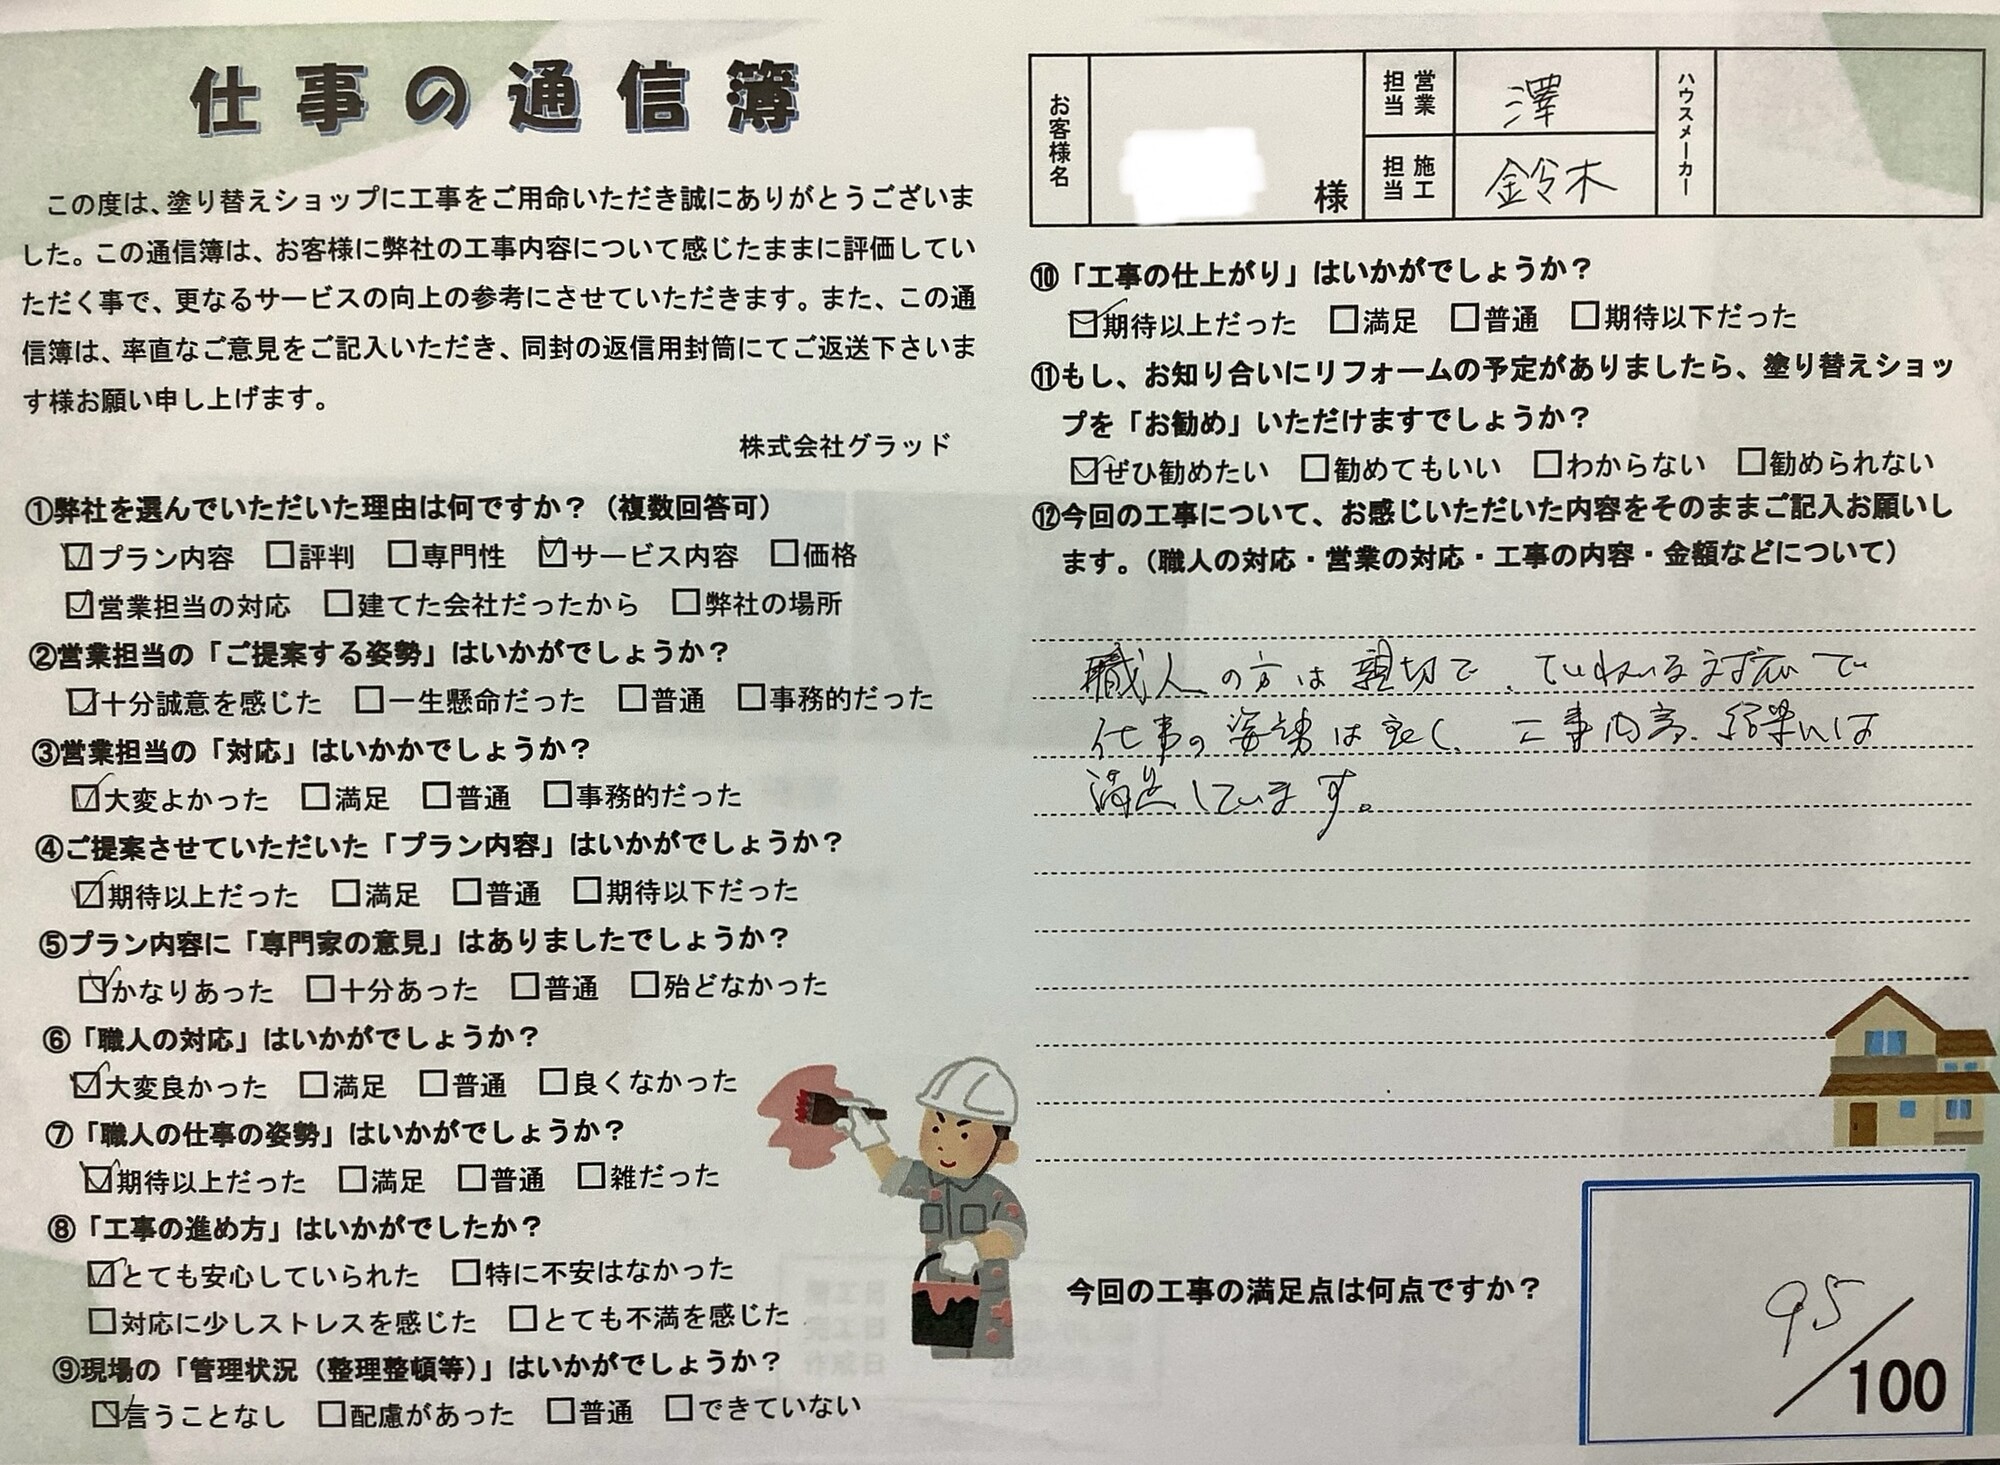 仕事の通信簿
この度は、塗り替えショップに工事をご用命いただき誠にありがとうございま
した。この通信簿は、お客様に弊社の工事内容について感じたままに評価してい
ただく事で、更なるサービスの向上の参考にさせていただきます。また、この通
信簿は、率直なご意見をご記入いただき、同封の返信用封筒にてご返送下さいま
す様お願い申し上げます。
株式会社グラッド
①弊社を選んでいただいた理由は何ですか？（複数回答可）
☑プラン内容 □評判 □専門性 ☑サービス内容 □価格
☑営業担当の対応 □建てた会社だったから □弊社の場所
②営業担当の「ご提案する姿勢」はいかがでしょうか？
☑十分誠意を感じた □一生懸命だった □普通 □事務的だった
③営業担当の「対応」はいかかでしょうか？
☑大変よかった □満足 □普通 □事務的だった
④ご提案させていただいた「プラン内容」はいかがでしょうか？
☑期待以上だった □満足 □普通 □期待以下だった
⑤プラン内容に「専門家の意見」はありましたでしょうか？
☑かなりあった □十分あった □普通 □殆どなかった
⑥「職人の対応」はいかがでしょうか？
☑大変良かった □満足 □普通 □良くなかった
⑦「職人の仕事の姿勢」はいかがでしょうか？
☑期待以上だった □満足 □普通 □雑だった
⑧「工事の進め方」はいかがでしたか？
☑とても安心していられた □特に不安はなかった
□対応に少しストレスを感じた □とても不満を感じた
⑨現場の「管理状況（整理整頓等）」はいかがでしょうか？
☑言うことなし □配慮があった □普通 □できていない
お客様名 様
営業担当 澤
施工担当 鈴木
ハウスメーカー
⑩「工事の仕上がり」はいかがでしょうか？
☑期待以上だった □満足 □普通 □期待以下だった
⑪もし、お知り合いにリフォームの予定がありましたら、塗り替えショッ
プを「お勧め」いただけますでしょうか？
☑ぜひ勧めたい □勧めてもいい □わからない □勧められない
⑫今回の工事について、お感じいただいた内容をそのままご記入お願いし
ます。（職人の対応・営業の対応・工事の内容・金額などについて）
職人の方は親切で、ていねいな対応で
仕事の姿勢は良く、工事内容、結果には
満足しています。
今回の工事の満足点は何点ですか？
95/100